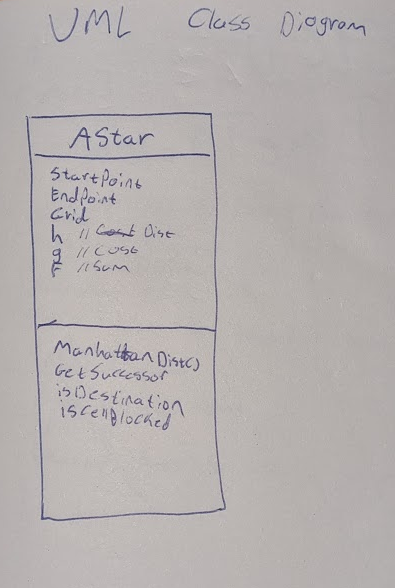 UML Class Diagram
AStar
StartPoint
EndPoint
Grid
h // Cost Dist
g // Cost
f // Sum
ManhattanDist()
GetSuccessor
isDestination
isCellBlocked